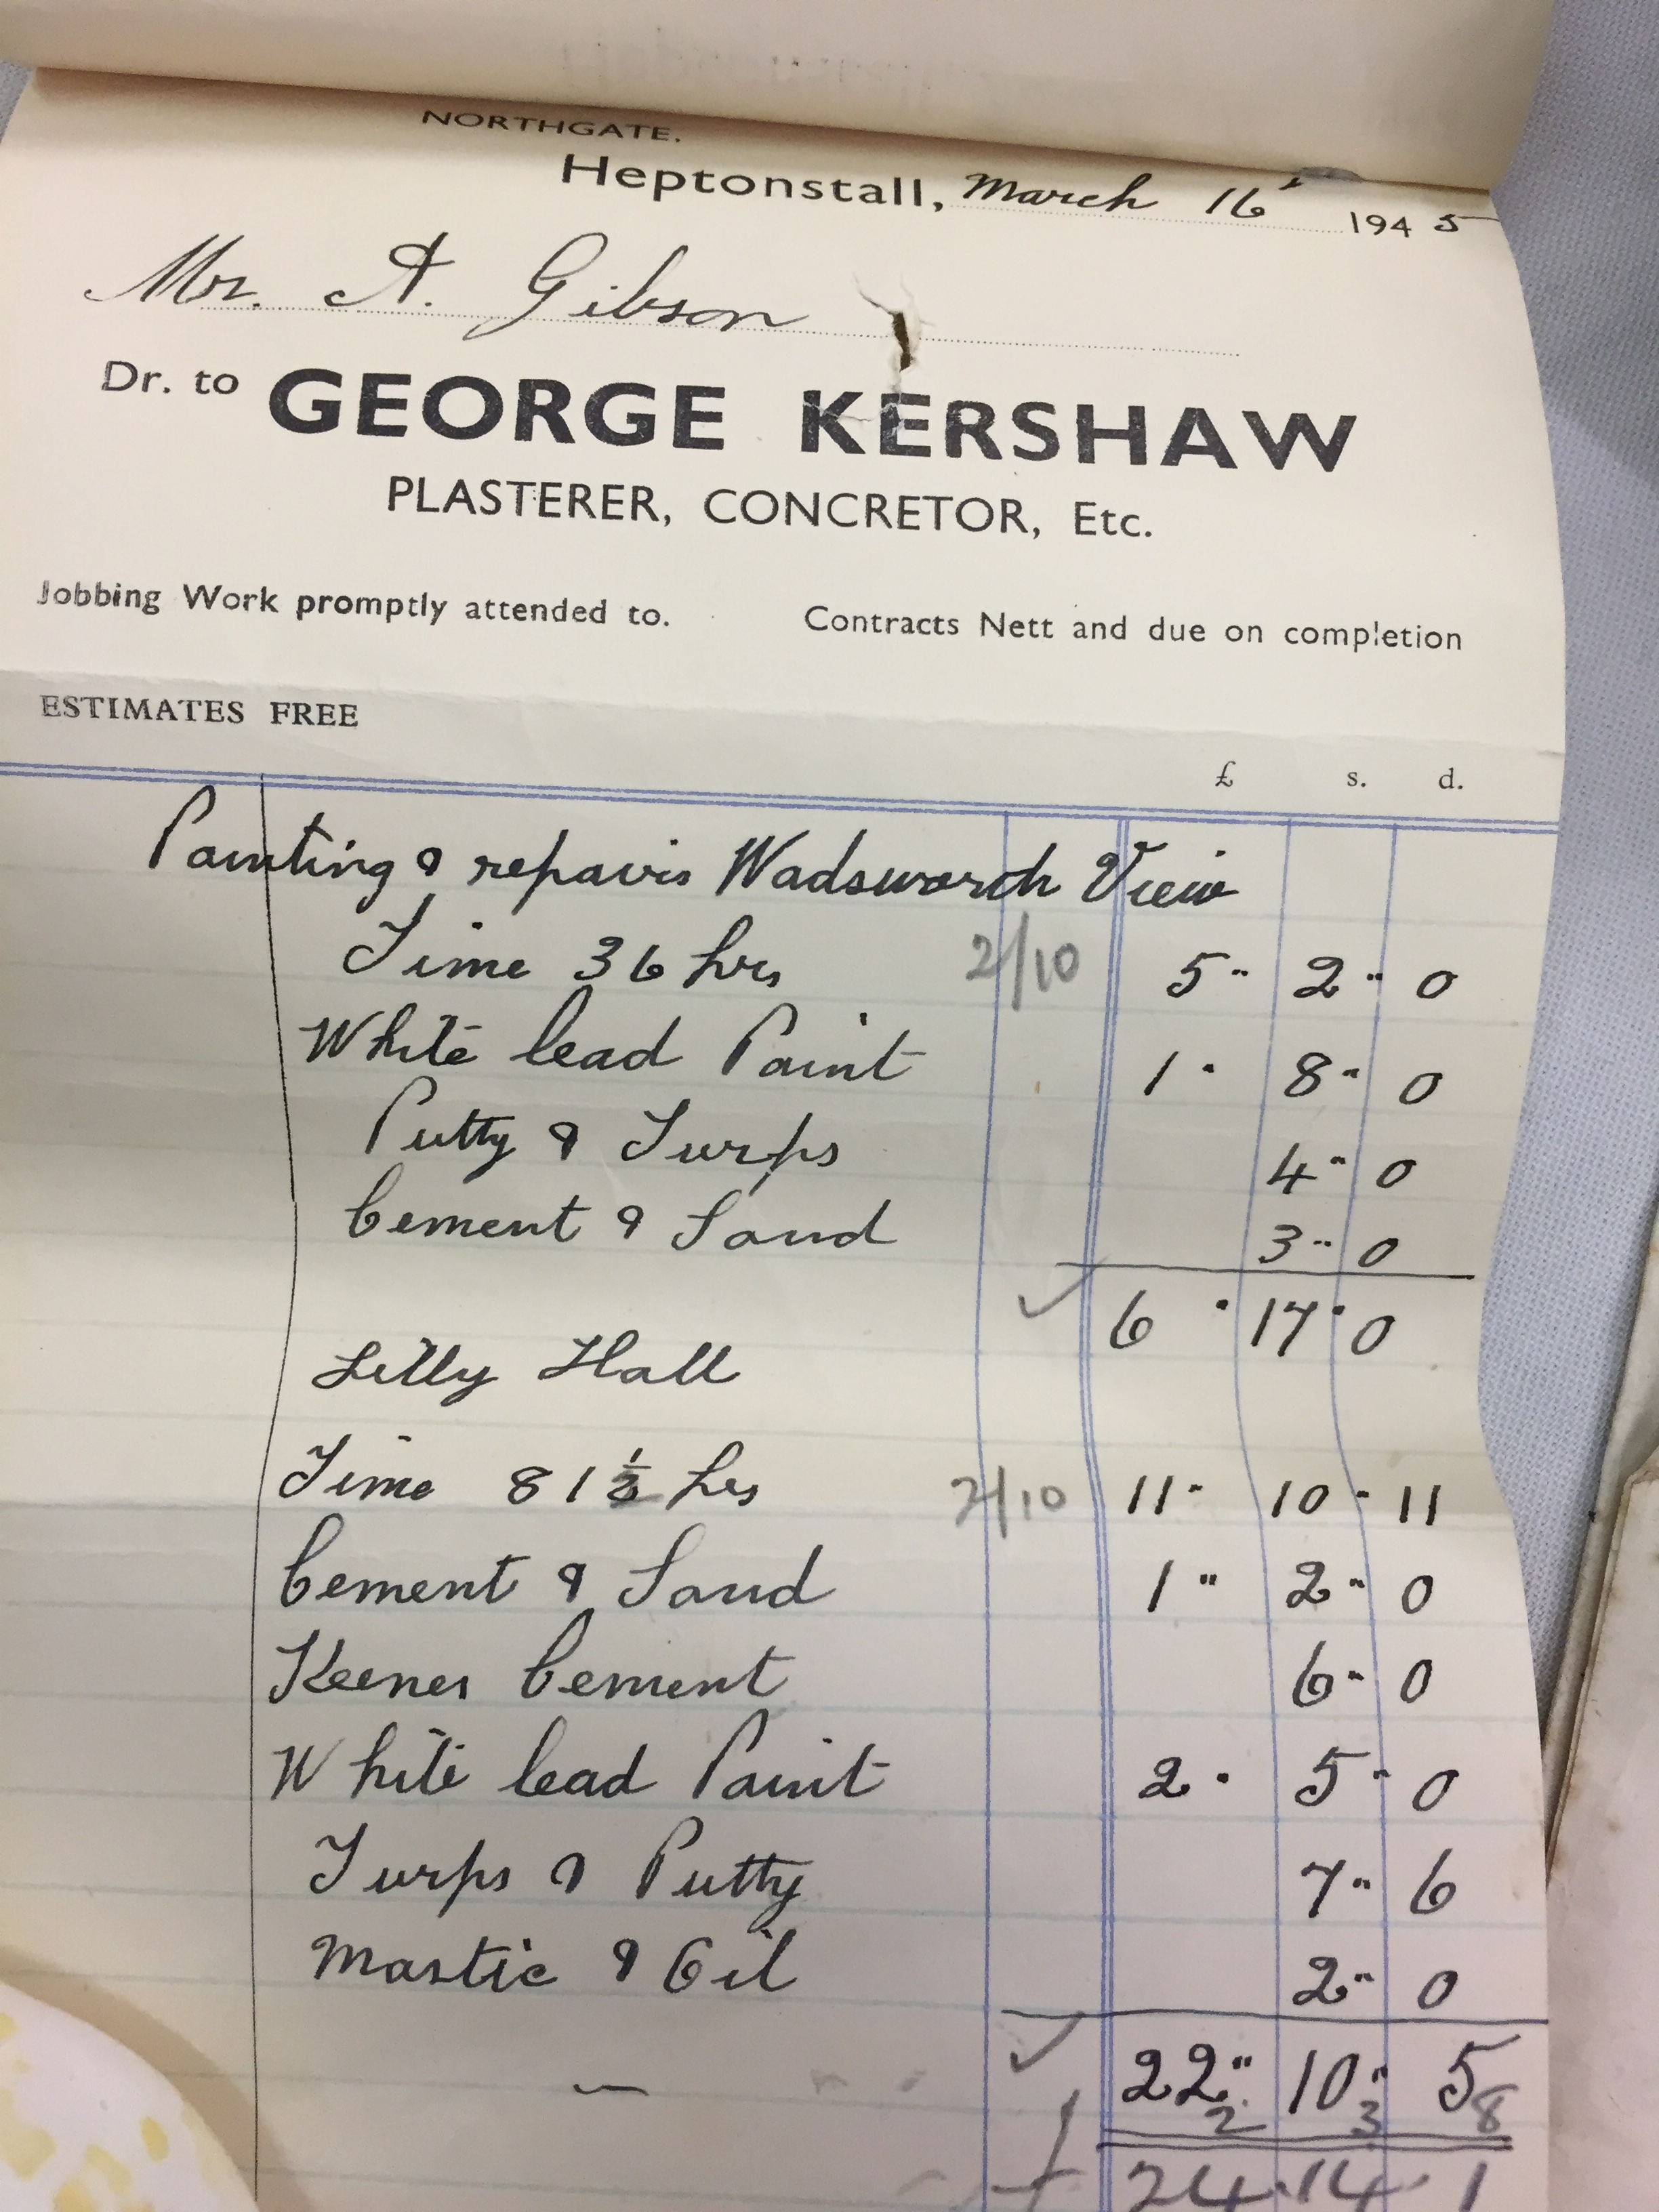 NORTHGATE.
Heptonstall, March 16 1945
Mr. A. Gibson
Dr. to GEORGE KERSHAW
PLASTERER, CONCRETOR, Etc.
Jobbing Work promptly attended to. Contracts Nett and due on completion
ESTIMATES FREE
£ s. d.
Painting & repairs Wadsworth View
Time 36 hrs 2/10 5 " 2 " 0
White lead Paint 1 " 8 " 0
Putty & Turps 4 " 0
Cement & Sand 3 " 0
✓ 6 " 17 " 0
Lilly Hall
Time 81½ hrs 2/10 11 " 10 " 11
Cement & Sand 1 " 2 " 0
Keenes Cement 6 " 0
White lead Paint 2 " 5 " 0
Turps & Putty 7 " 6
Mastic & Oil 2 " 0
✓ 22 " 10 " 5
2 3 8
24 . 14 . 1